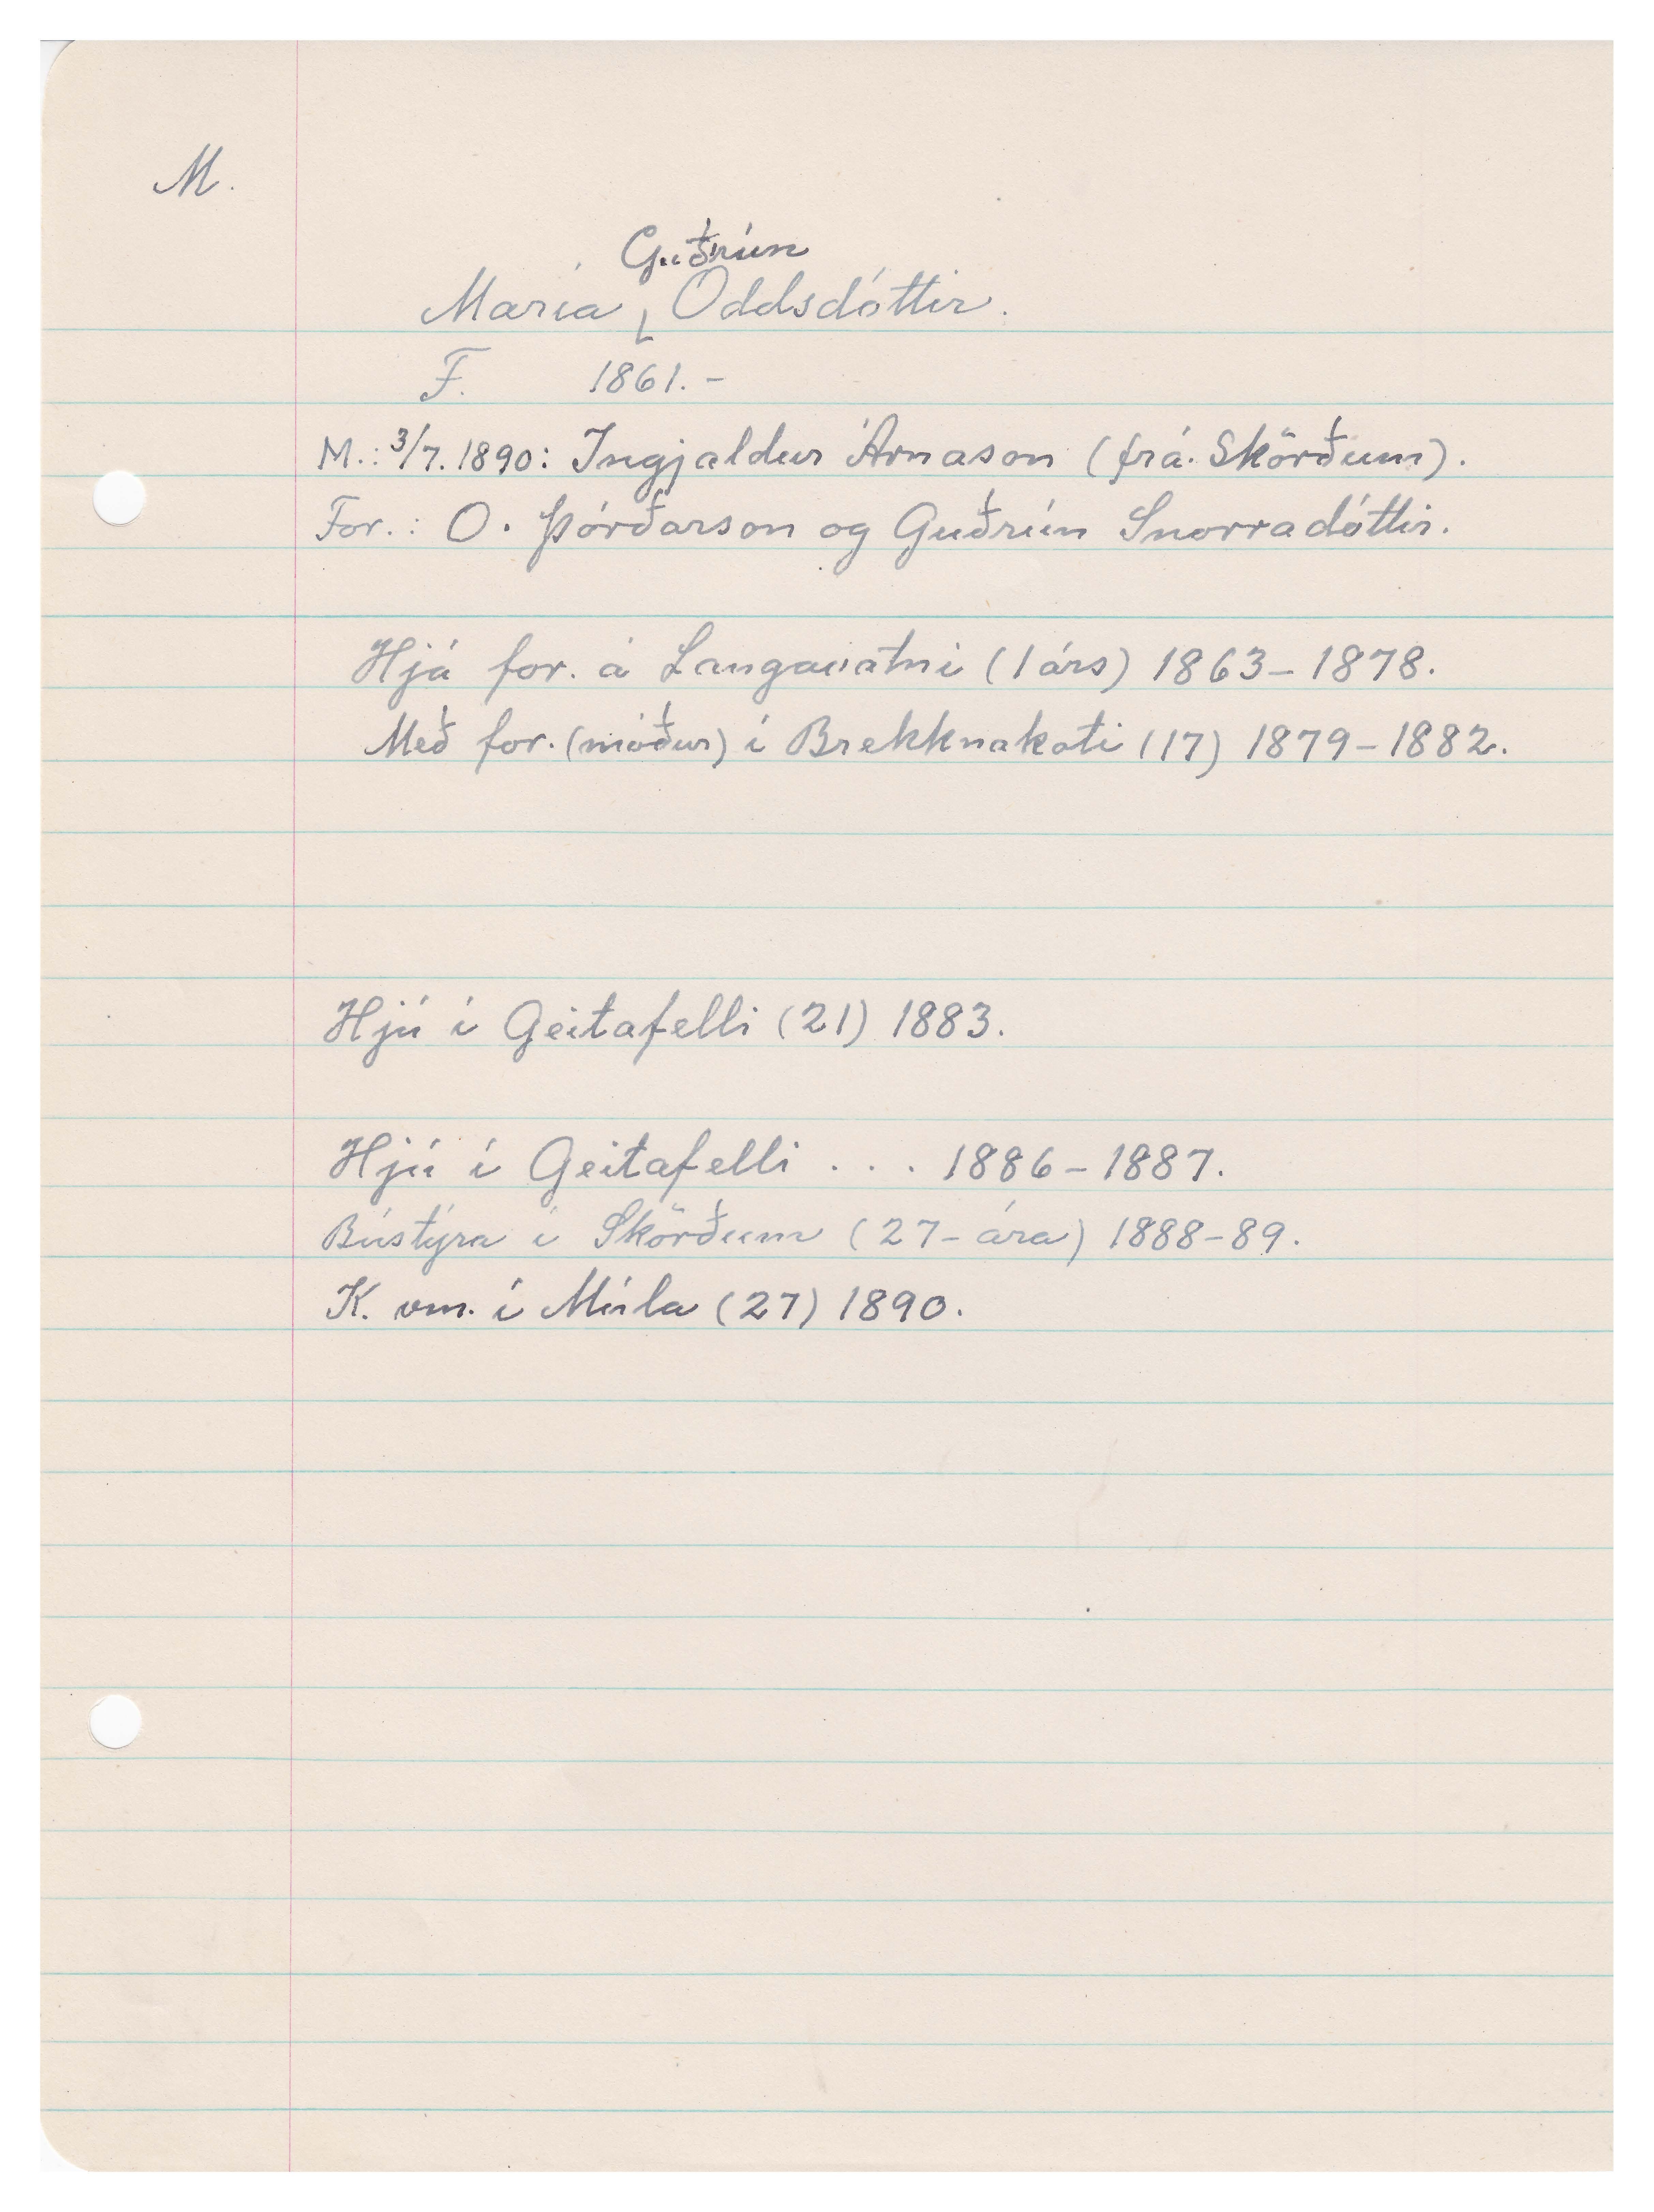 M.
Guðrún
María Oddsdóttir.
F. 1861.-
M.: 3/7. 1890: Ingjaldur Árnason (frá Skörðum).
For.: O. Þórðarson og Guðrún Snorradóttir.
Hjá for. á Langavatni (1 árs) 1863-1878.
Með for. (móður) í Brekknakoti (17) 1879-1882.
Hjú í Geitafelli (21) 1883.
Hjú í Geitafelli . . . 1886-1887.
Bústýra í Skörðum (27-ára) 1888-89.
K. vm. í Múla (27) 1890.